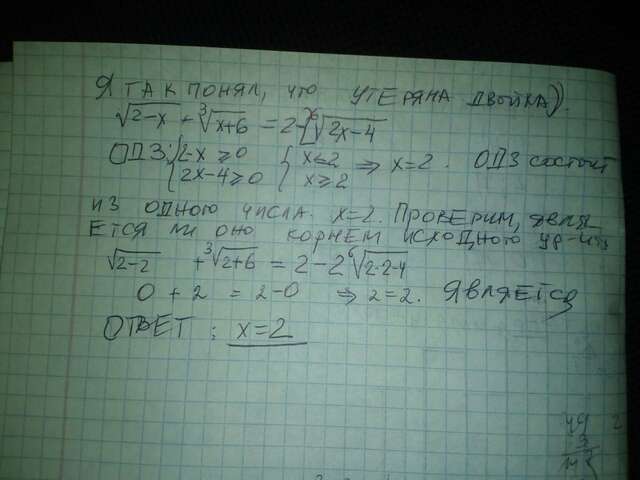 Я ТАК ПОНЯЛ, ЧТО УТЕРЯНА ДВОЙКА).
√2-x + ³√x+6 = 2-⁶√2x-4
ОДЗ: {2-x ≥ 0 {x ≤ 2 ⇒ x=2. ОДЗ состоит
{2x-4 ≥ 0 {x ≥ 2
ИЗ ОДНОГО ЧИСЛА. x=2. ПРОВЕРИМ, ЯВЛЯ
ЕТСЯ ЛИ ОНО КОРНЕМ ИСХОДНОГО УР-НИЯ
√2-2 + ³√2+6 = 2-2⁶√2·2-4
0 + 2 = 2-0 ⇒ 2=2. ЯВЛЯЕТСЯ
ОТВЕТ: x=2